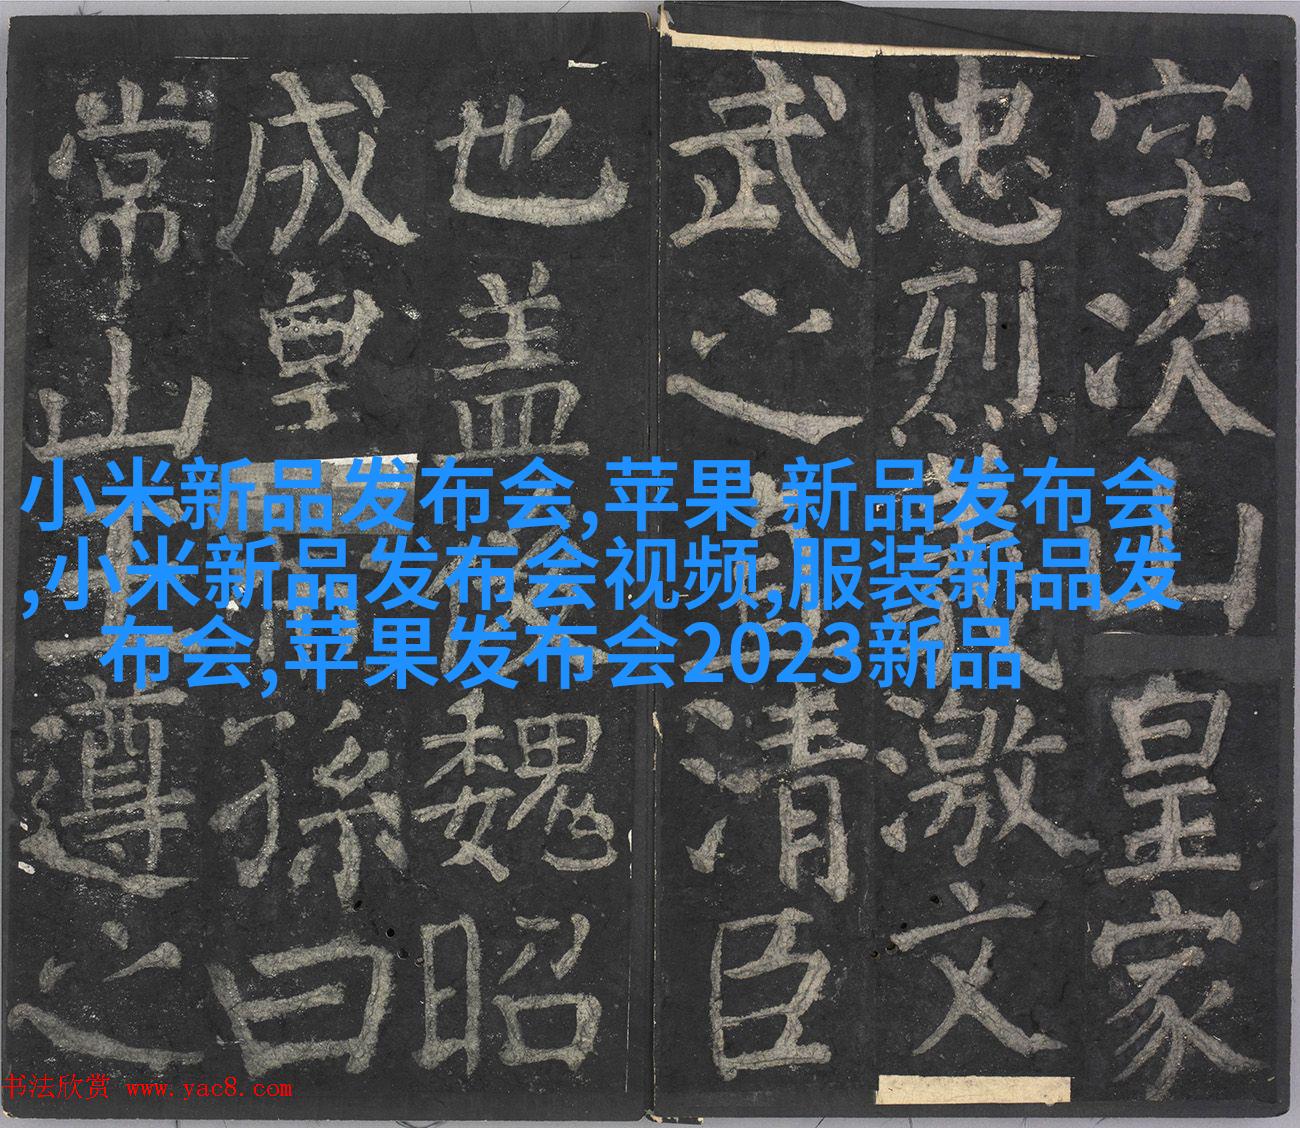 字次山皇家
忠烈義激文
武之直清臣
也盖魏昭
成皇孫曰
常山王遵之
小米新品发布会,苹果 新品发布会
,小米新品发布会视频,服装新品发
布会,苹果发布会2023新品
书法欣赏 www.yac8.com